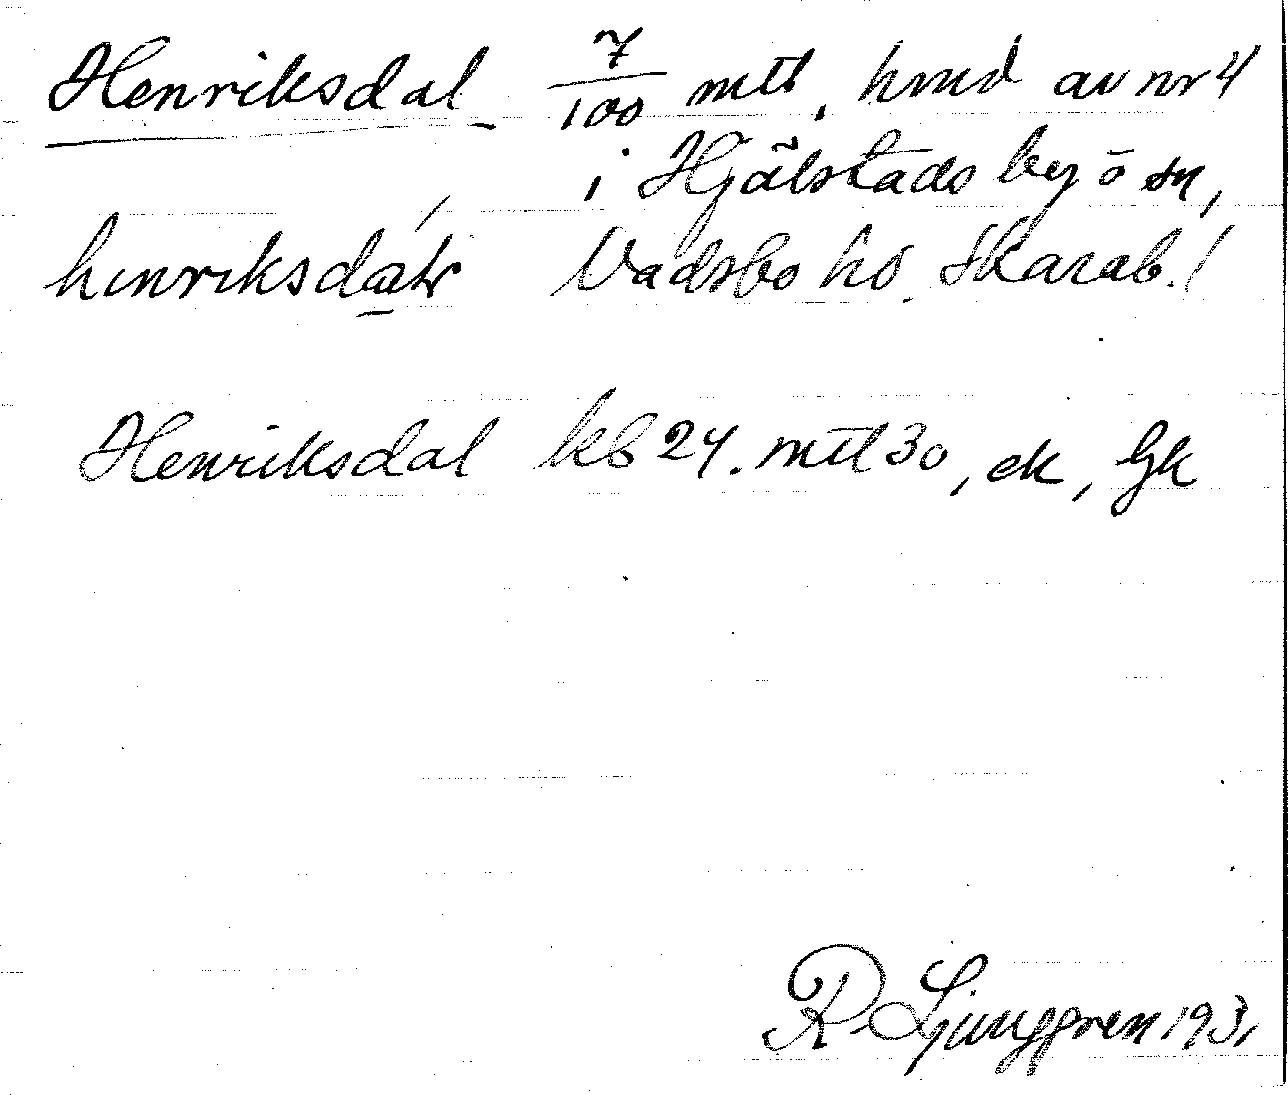 Henriksdal 7/100 mtl, hmd av nr 4
i Hjälstads by o sn,
hinriksda Vadsbo hd. Skarab. l
Henriksdal kb 24. mtl 30, ek, Gk
R Ljunggren 1931